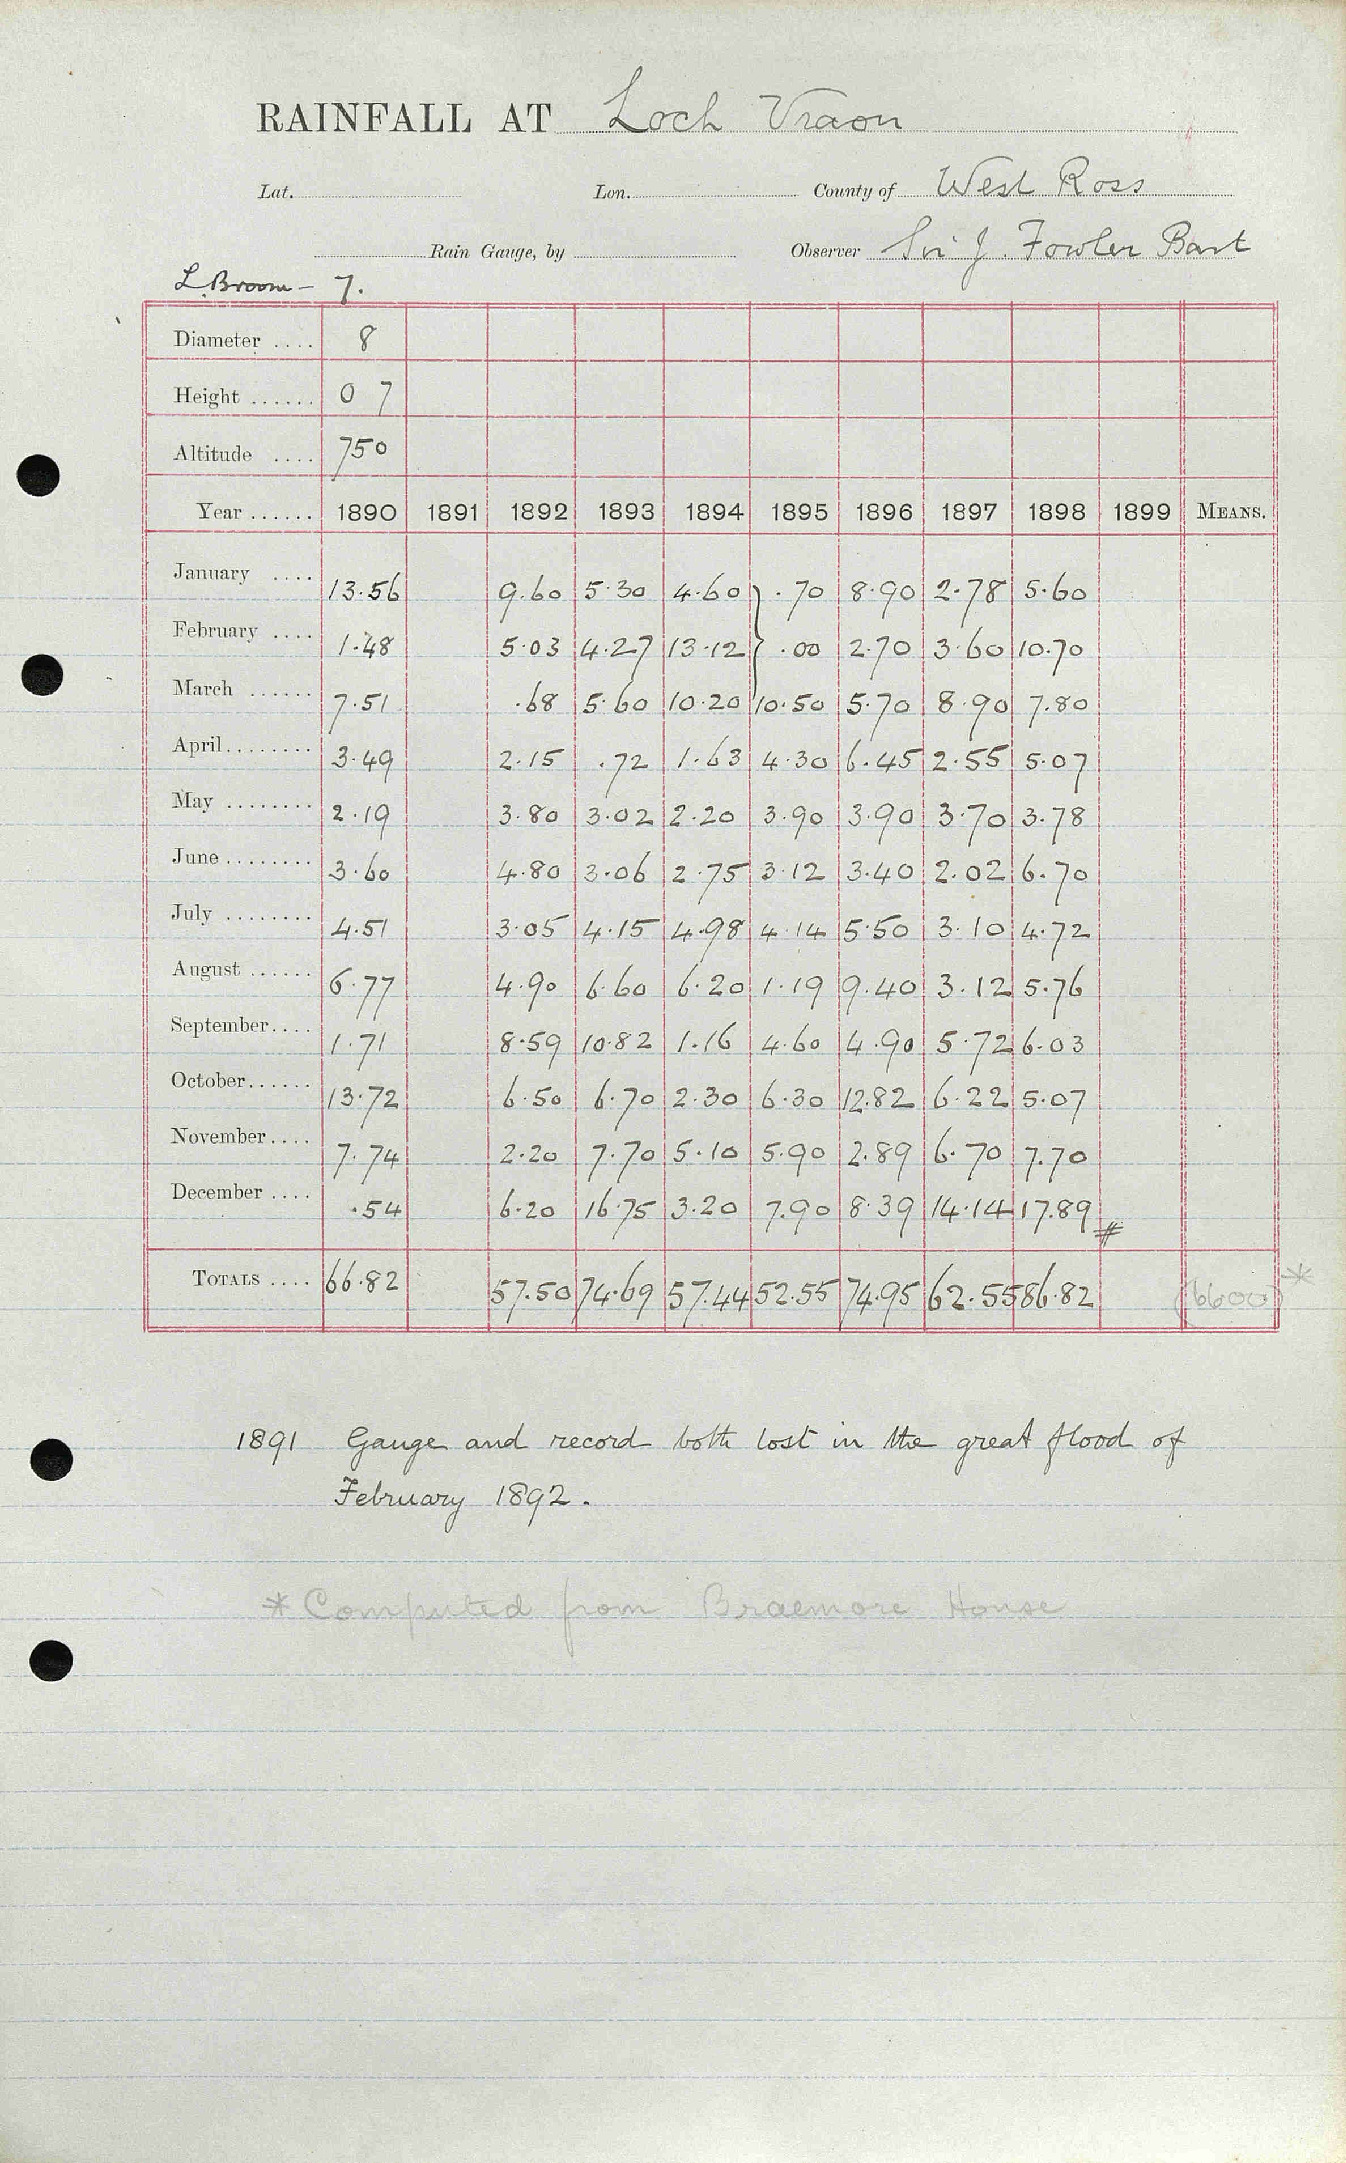 RAINFALL AT Loch Vraon
Lat. Lon. County of West Ross
Rain Gauge, by Observer Sir J. Fowler Bart
L. Broom - 7.
Diameter .... 8
Height ...... 0 7
Altitude .... 750
Year ...... 1890 1891 1892 1893 1894 1895 1896 1897 1898 1899 MEANS.
January .... 13.56 9.60 5.30 4.60 } .70 8.90 2.78 5.60
February .... 1.48 5.03 4.27 13.12 } .00 2.70 3.60 10.70
March ...... 7.51 .68 5.60 10.20 10.50 5.70 8.90 7.80
April........ 3.49 2.15 .72 1.63 4.30 6.45 2.55 5.07
May ........ 2.19 3.80 3.02 2.20 3.90 3.90 3.70 3.78
June ........ 3.60 4.80 3.06 2.75 3.12 3.40 2.02 6.70
July ........ 4.51 3.05 4.15 4.98 4.14 5.50 3.10 4.72
August ...... 6.77 4.90 6.60 6.20 1.19 9.40 3.12 5.76
September.... 1.71 8.59 10.82 1.16 4.60 4.90 5.72 6.03
October...... 13.72 6.50 6.70 2.30 6.30 12.82 6.22 5.07
November.... 7.74 2.20 7.70 5.10 5.90 2.89 6.70 7.70
December .... .54 6.20 16.75 3.20 7.90 8.39 14.14 17.89 #
TOTALS .... 66.82 57.50 74.69 57.44 52.55 74.95 62.55 86.82 (6600) *
1891 Gauge and record both lost in the great flood of
February 1892.
* Computed from Braemore House